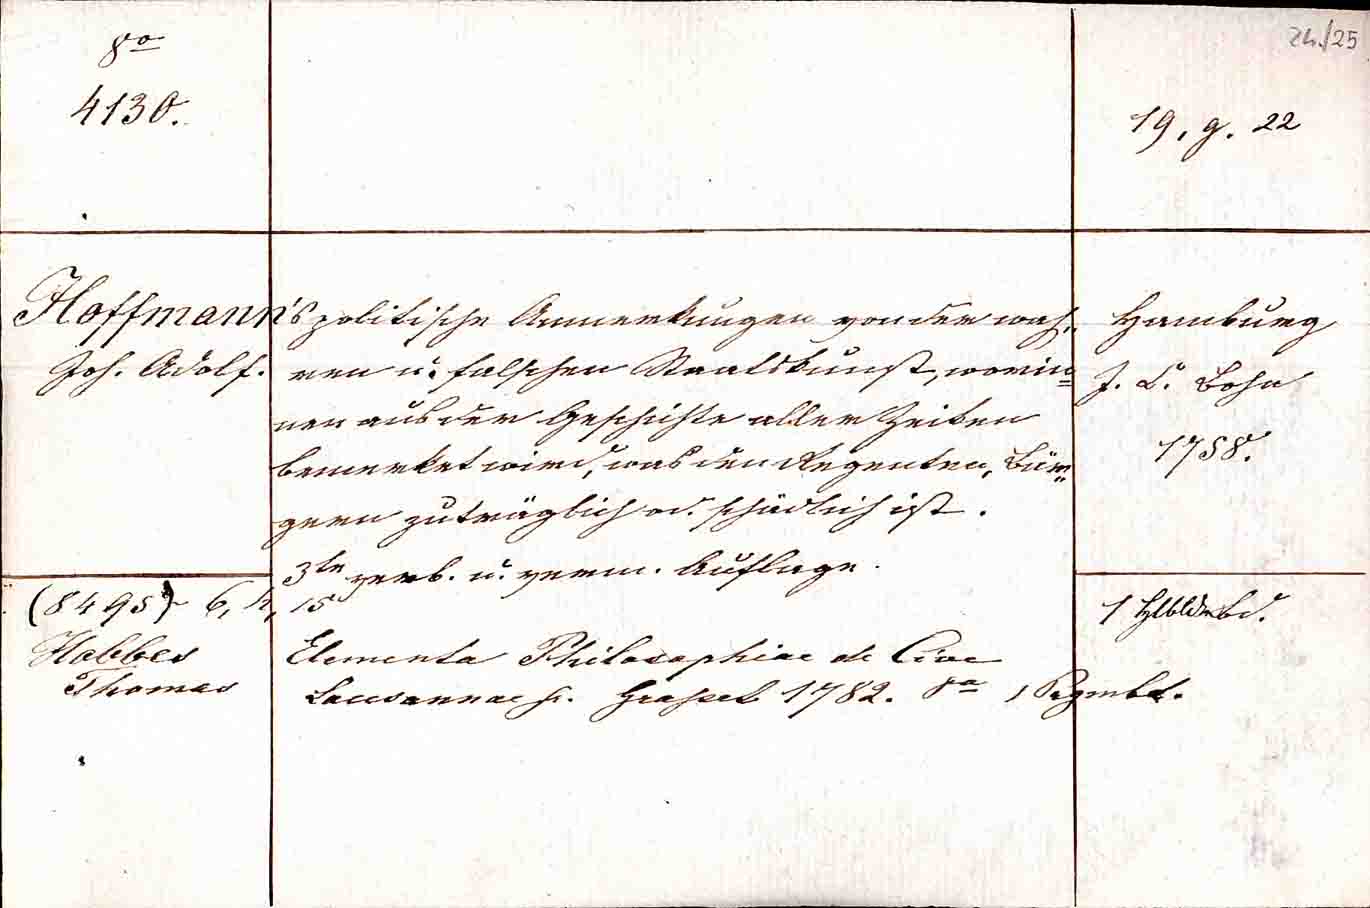 8º
4130.
24./25
19, g. 22
Hoffmann's politische Anmerkungen von der wah-
Joh. Adolf. ren u. falschen Staatskunst, worin=
nen aus der Geschichte aller Zeiten
bemerket wird, was den Regenten, Bür=
gern zuträglich od. schädlich ist.
3te verb. u. verm. Auflage.
Hamburg
J. C. Bohn
1758.
1 Hlbldrbd.
(8495) 6, h, 15
Hobbes
Thomas
Elementa Philosophiae de Cive
Lausannae fr. Grasset 1782. 8º 1 Pgmbd.